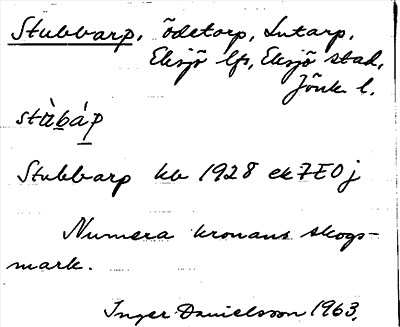 Stubbarp, ödetorp, Lutarp,
Eksjö lfs, Eksjö stad,
Jönk l.
stùbáp
Stubbarp kb 1928 ek 7E0j
Numera kronans skogs-
mark.
Inger Danielsson 1963.